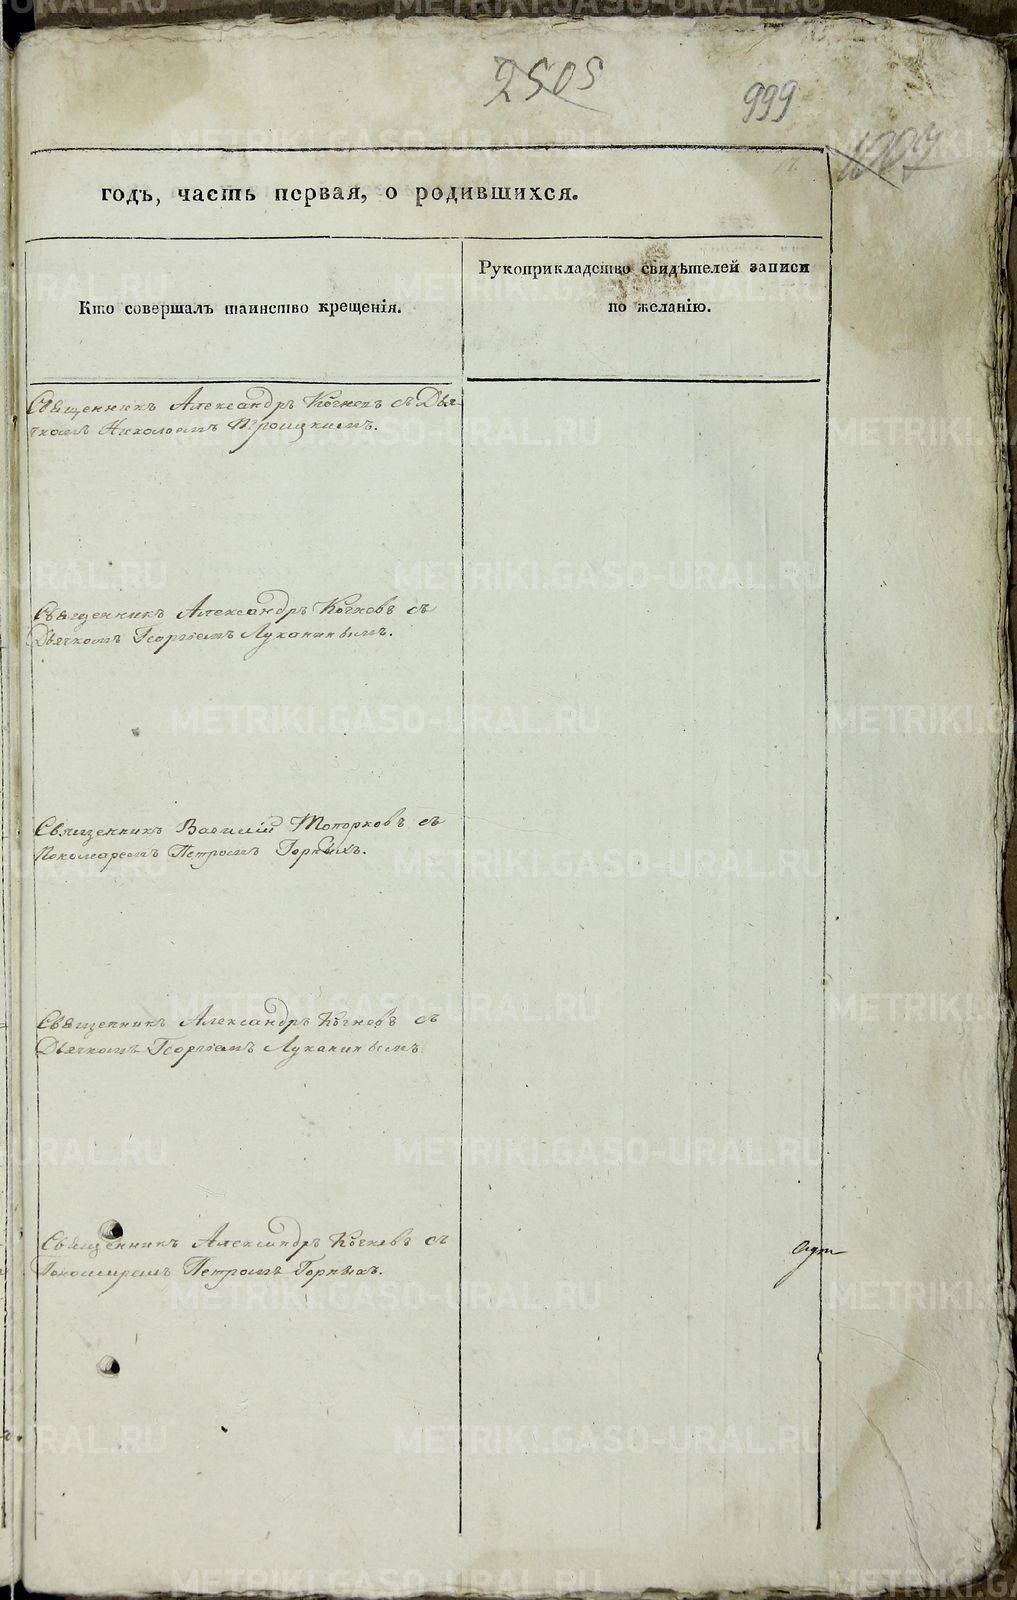 2505
999
годъ, часть первая, о родившихся.
Кто совершалъ таинство крещенія.
Рукоприкладство свидѣтелей записи
по желанію.
Священникъ Александръ Кочневъ съ Дья-
чкомъ Николаемъ Троицкимъ.
Священникъ Александръ Кочневъ съ
Дьячкомъ Георгіемъ Луканинымъ.
Священникъ Василій Топорковъ съ
Пономаремъ Петромъ Горныхъ.
Священникъ Александръ Кочневъ съ
Дьячкомъ Георгіемъ Луканинымъ.
Священникъ Александръ Кочневъ съ
Пономаремъ Петромъ Горныхъ.
METRIKI.GASO-URAL.RU